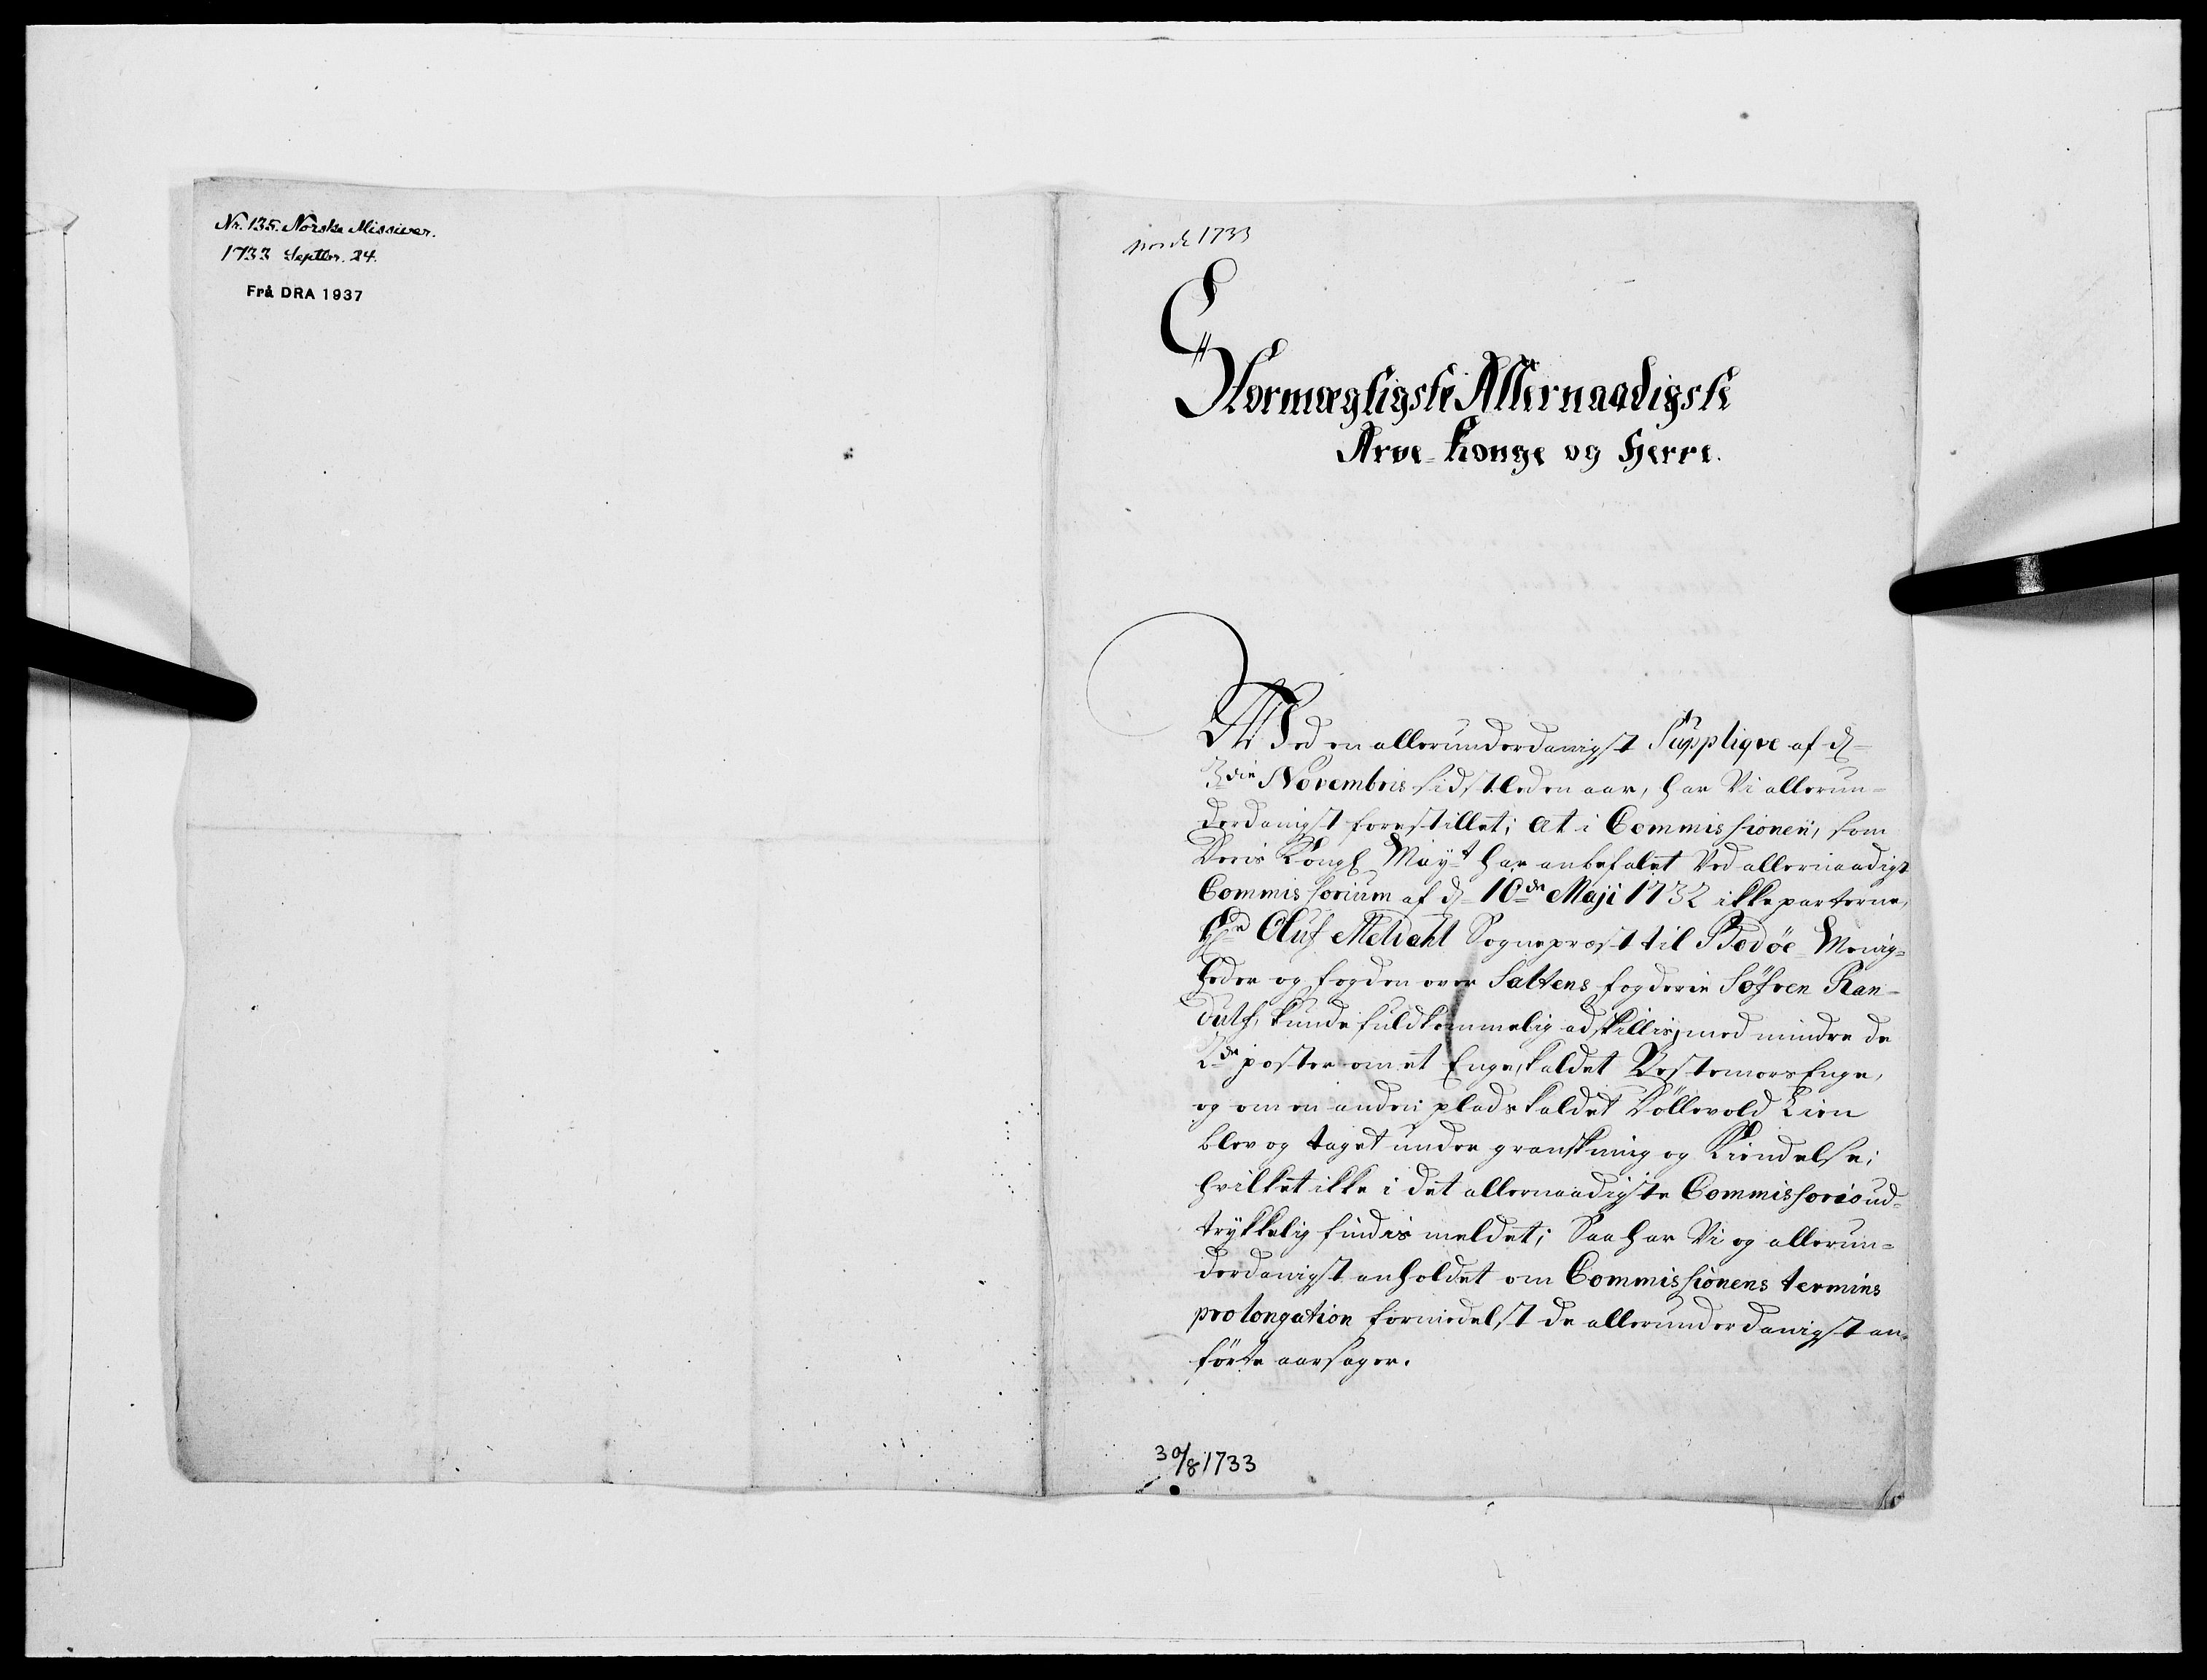 Nr. 135. Norske Missiver.
1733 Septbr. 24.
Frå DRA 1937
Norsk 1733
Stormægtigste Allernaadigste
Arve-Konge og Herre.
Med en allerunderdanigst Supplique af d.
3die Novembris sidstleden aar, har Vi allerun-
derdanigst forestillet; at i Commissionen, som
Deris Kongl. Mayt. har anbefalet Ved allernaadigst
Commissorium af d. 10de Maji 1732 ikke parterne,
Hr. Oluf Meldahl Sognepræst til Bodøe Menig-
heder og fogden over Saltens fogderie Søfren Ran-
dulf, kunde fuldkommelig adskillis, med mindre de
2de poster om et Enge, kaldet Vestemors Enge,
og om en anden plads kaldet Køllevold Lien
blev og taget under granskning og Kiendelse;
hvilket ikke i det allernaadigste Commissorio ud-
trykkelig findis meldet; Saa har Vi og allerun-
derdanigst anholdet om Commissionens termins
prolongation formedelst de allerunderdanigst an-
førte aarsager.
30/8 1733